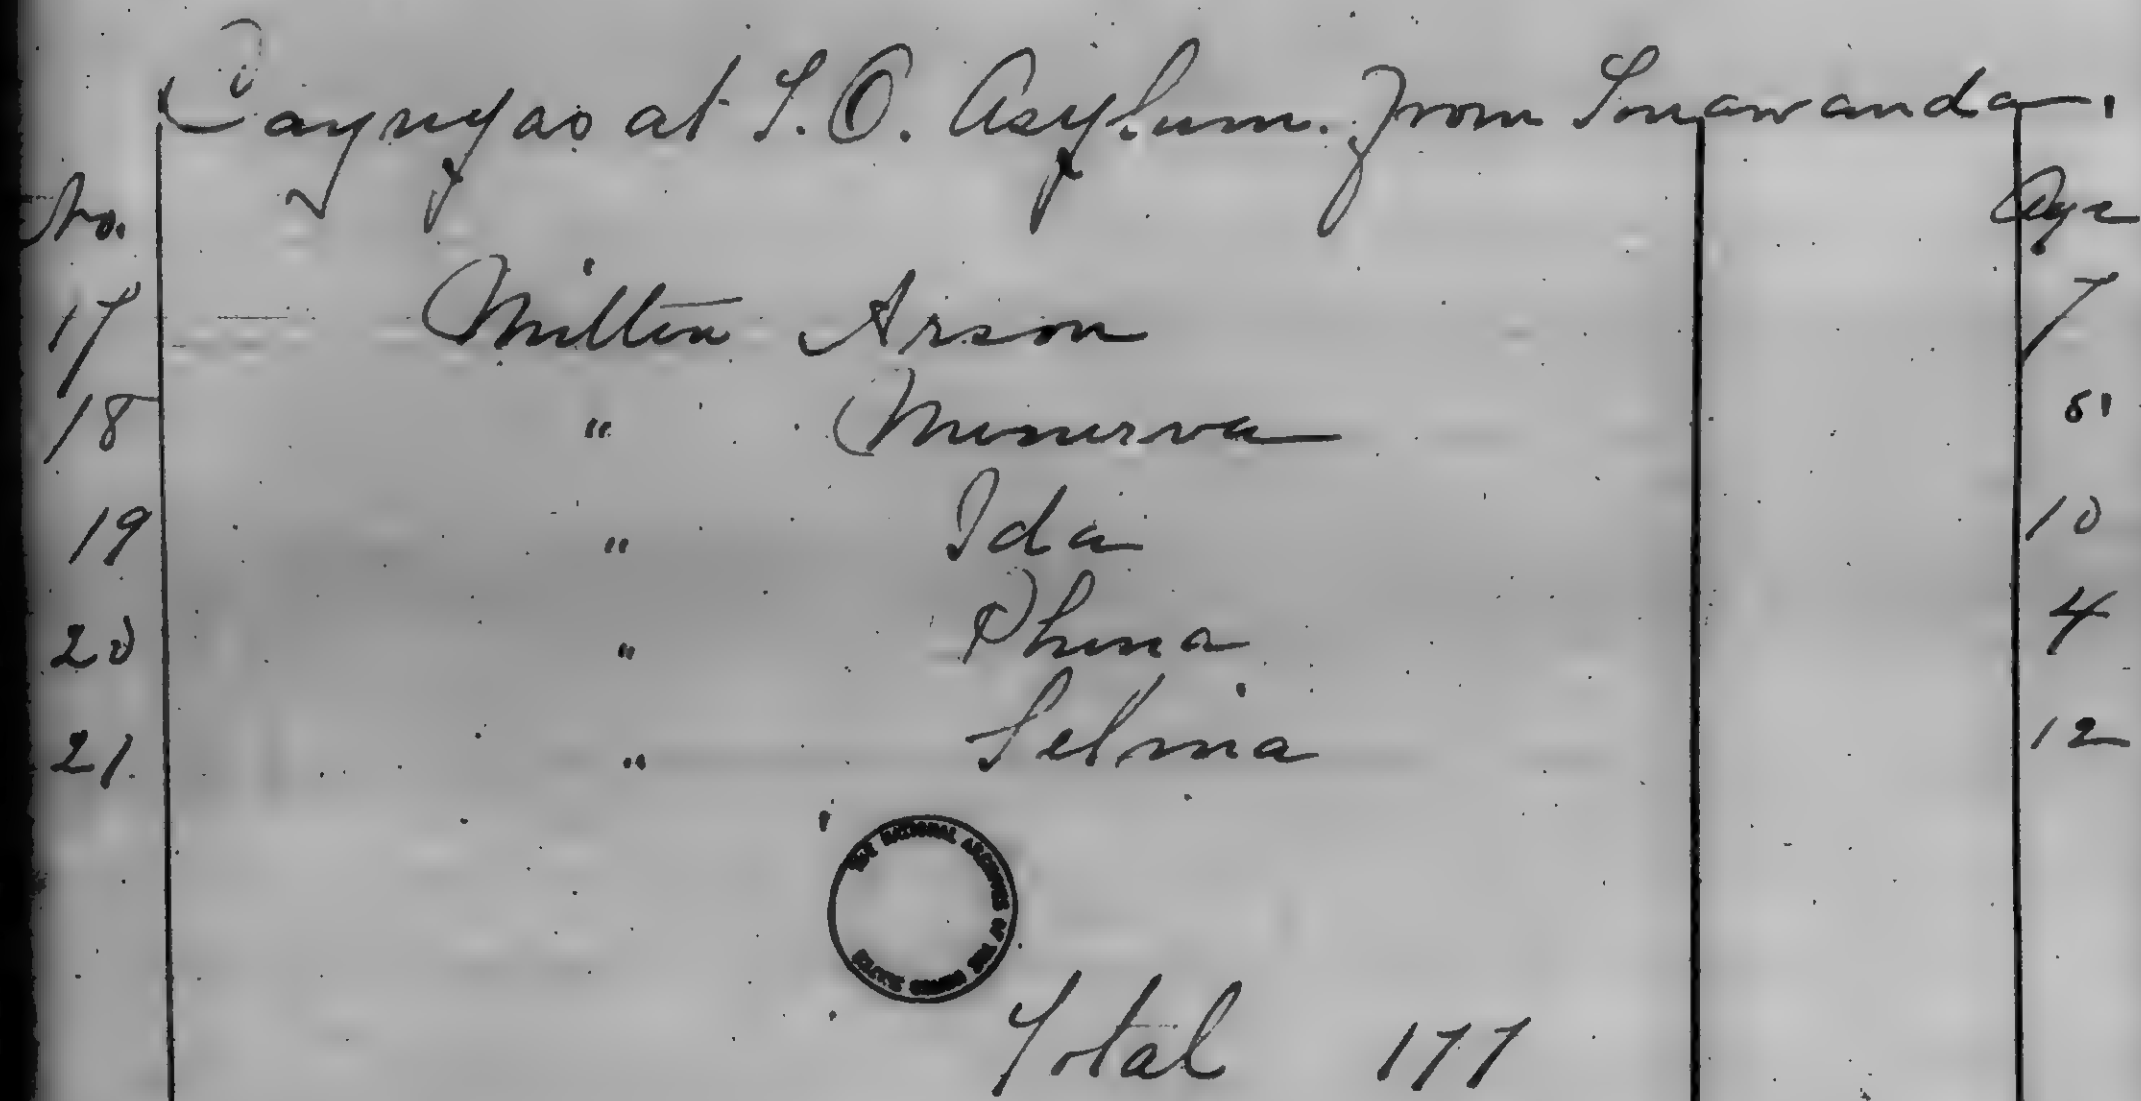 Cayugas at T.O. Asylum. From Tonawanda.
No. Age
17 Milton Arson 7
18 " Minerva
19 " Ida 10
20 " Phena 4
21. " Selina 12
THE NATIONAL ARCHIVES OF THE UNITED STATES
Total 177